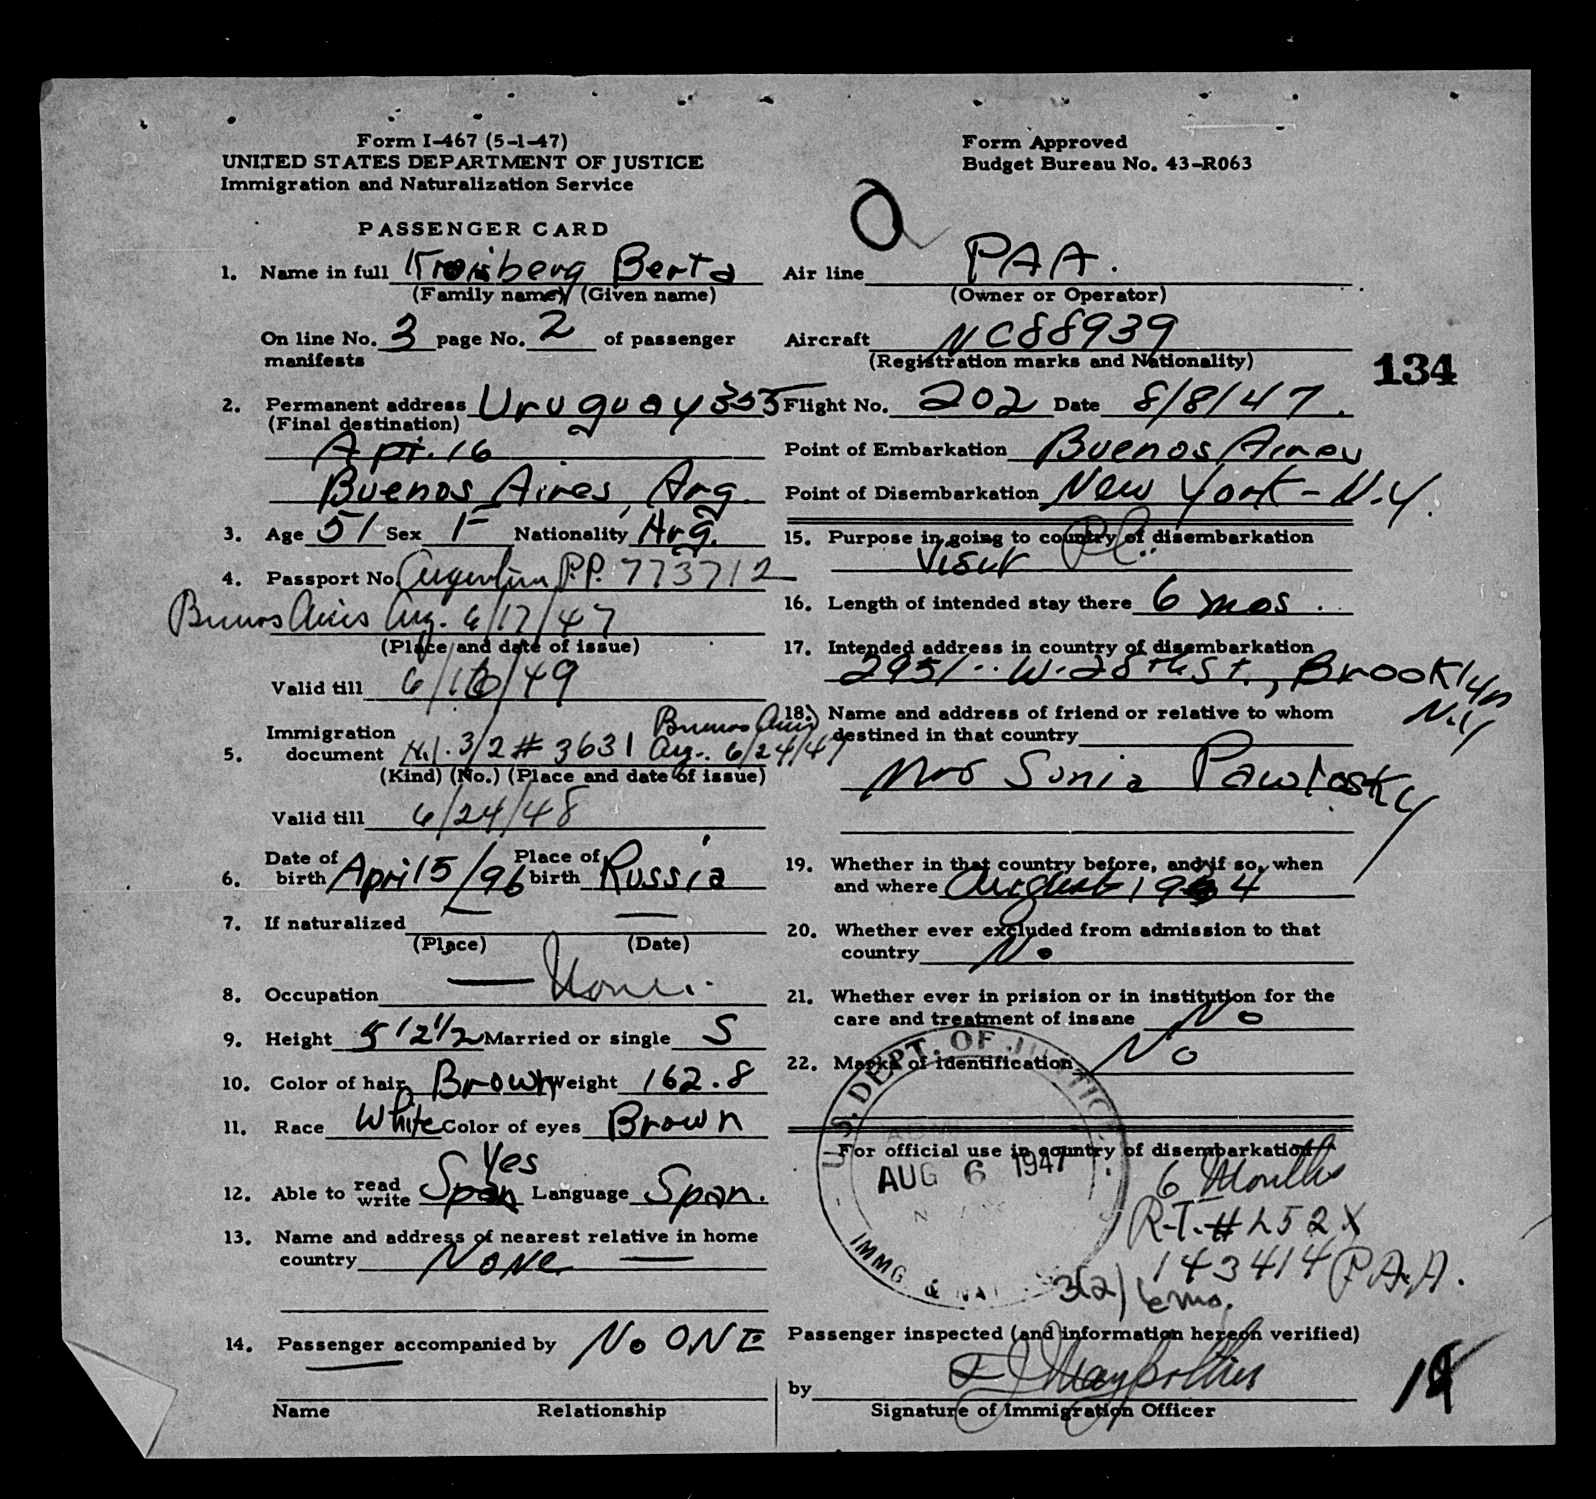 Form I-467 (5-1-47)
UNITED STATES DEPARTMENT OF JUSTICE
Immigration and Naturalization Service
PASSENGER CARD
1. Name in full Berta
(Family name) (Given name)
On line No. 3 page No. 2 of passenger
manifests
2. Permanent address Uruguay 305
(Final destination)
Apt. 16
Buenos Aires, Arg.
3. Age 51 Sex F Nationality Arg.
4. Passport No. Argentina P.P. 773712
Buenos Aires Arg. 6/17/47
(Place and date of issue)
Valid till 6/16/49
5. Immigration document 3/2 # 3631 Buenos Aires Arg. 6/24/47
(Kind) (No.) (Place and date of issue)
Valid till 6/24/48
6. Date of birth April 5/96 Place of birth Russia
7. If naturalized — —
(Place) (Date)
8. Occupation — None.
9. Height 5 1 2 1/2 Married or single S
10. Color of hair Brown Weight 162.8
11. Race White Color of eyes Brown
12. Able to read write Yes Span Language Span.
13. Name and address of nearest relative in home
country None —
14. Passenger accompanied by No ONE
Name Relationship
Form Approved
Budget Bureau No. 43-R063
Air line PAA.
(Owner or Operator)
Aircraft NC88939
(Registration marks and Nationality)
134
Flight No. 202 Date 8/8/47.
Point of Embarkation Buenos Aires
Point of Disembarkation New York - N.Y.
15. Purpose in going to country of disembarkation
Visit
16. Length of intended stay there 6 mos.
17. Intended address in country of disembarkation
2951 -- W. 28th St., Brooklyn
N.Y
18. Name and address of friend or relative to whom
destined in that country
Mrs Sonia Pawlosky
19. Whether in that country before, and if so, when
and where August 1934
20. Whether ever excluded from admission to that
country No
21. Whether ever in prision or in institution for the
care and treatment of insane No
22. Marks of identification No
U.S. DEPT. OF JUSTICE
For official use in country of disembarkation
AUG 6 1947
IMMG & NAT
6 Months
R.T. # L52X
143414 P.A.A.
3(2) 6 mo.
Passenger inspected (and information hereon verified)
by
Signature of Immigration Officer